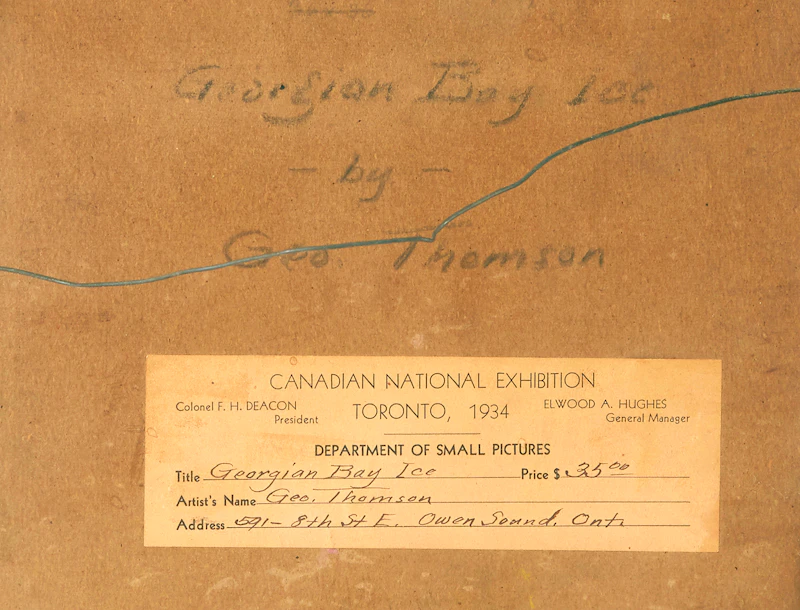 Georgian Bay Ice
- by -
Geo. Thomson
CANADIAN NATIONAL EXHIBITION
Colonel F. H. DEACON
President
TORONTO, 1934
ELWOOD A. HUGHES
General Manager
DEPARTMENT OF SMALL PICTURES
Title Georgian Bay Ice Price $ 35 00
Artist's Name Geo. Thomson
Address 591- 8th St E. Owen Sound, Ont.